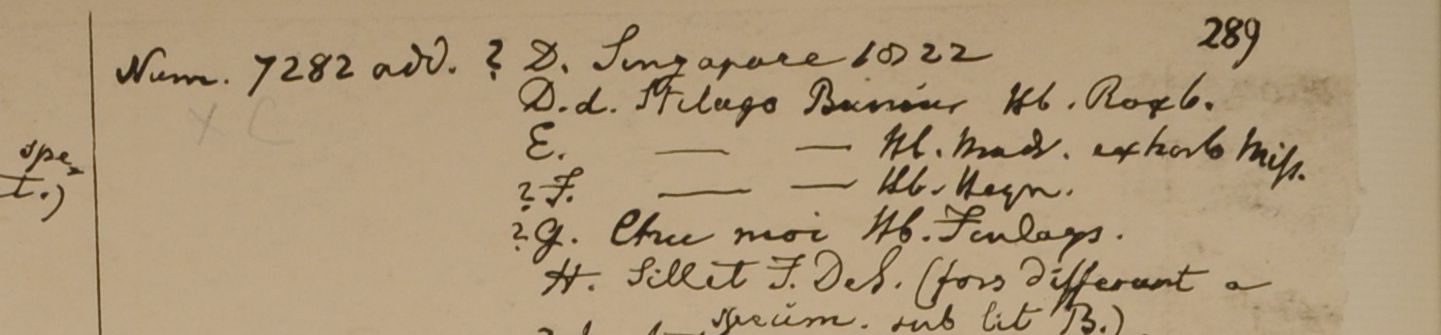 289
Num. 7282 add. ? D. Singapore 1822
D.d. Stilago Bunius Hb. Roxb.
E. — — Hb. Madr. ex horto Miss.
? F. — — Hb. Heyn.
? G. Chu moi Hb. Finlays.
H. Sillet F. DeS. (fors different a
specim. sub lit B.)
spe
t.)